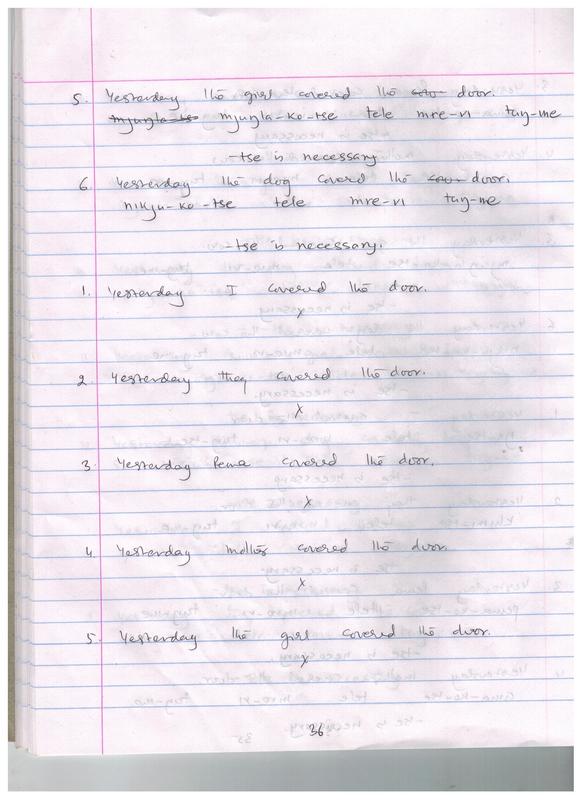 5. Yesterday the girl covered the door.
mjuŋla-ko-tse tele mre-ri tuŋ-me
-tse is necessary
6. Yesterday the dog covered the door.
nikju-ko-tse tele mre-ri tuŋ-me
-tse is necessary.
1. Yesterday I covered the door.
X
2. Yesterday they covered the door.
X
3. Yesterday Pema covered the door.
X
4. Yesterday mother covered the door.
X
5. Yesterday the girl covered the door.
X
36